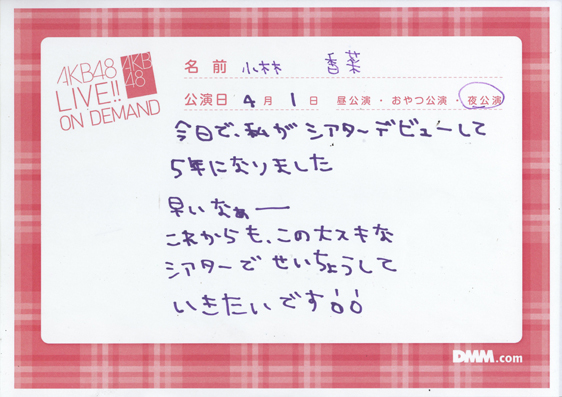 AKB48
LIVE!!
ON DEMAND
AKB
48
名前 小林 香菜
公演日 4月1日 昼公演・おやつ公演・夜公演
今日で、私がシアターデビューして
5年になりました
早いなぁー
これからも、この大スキな
シアターでせいちょうして
いきたいです
DMM.com